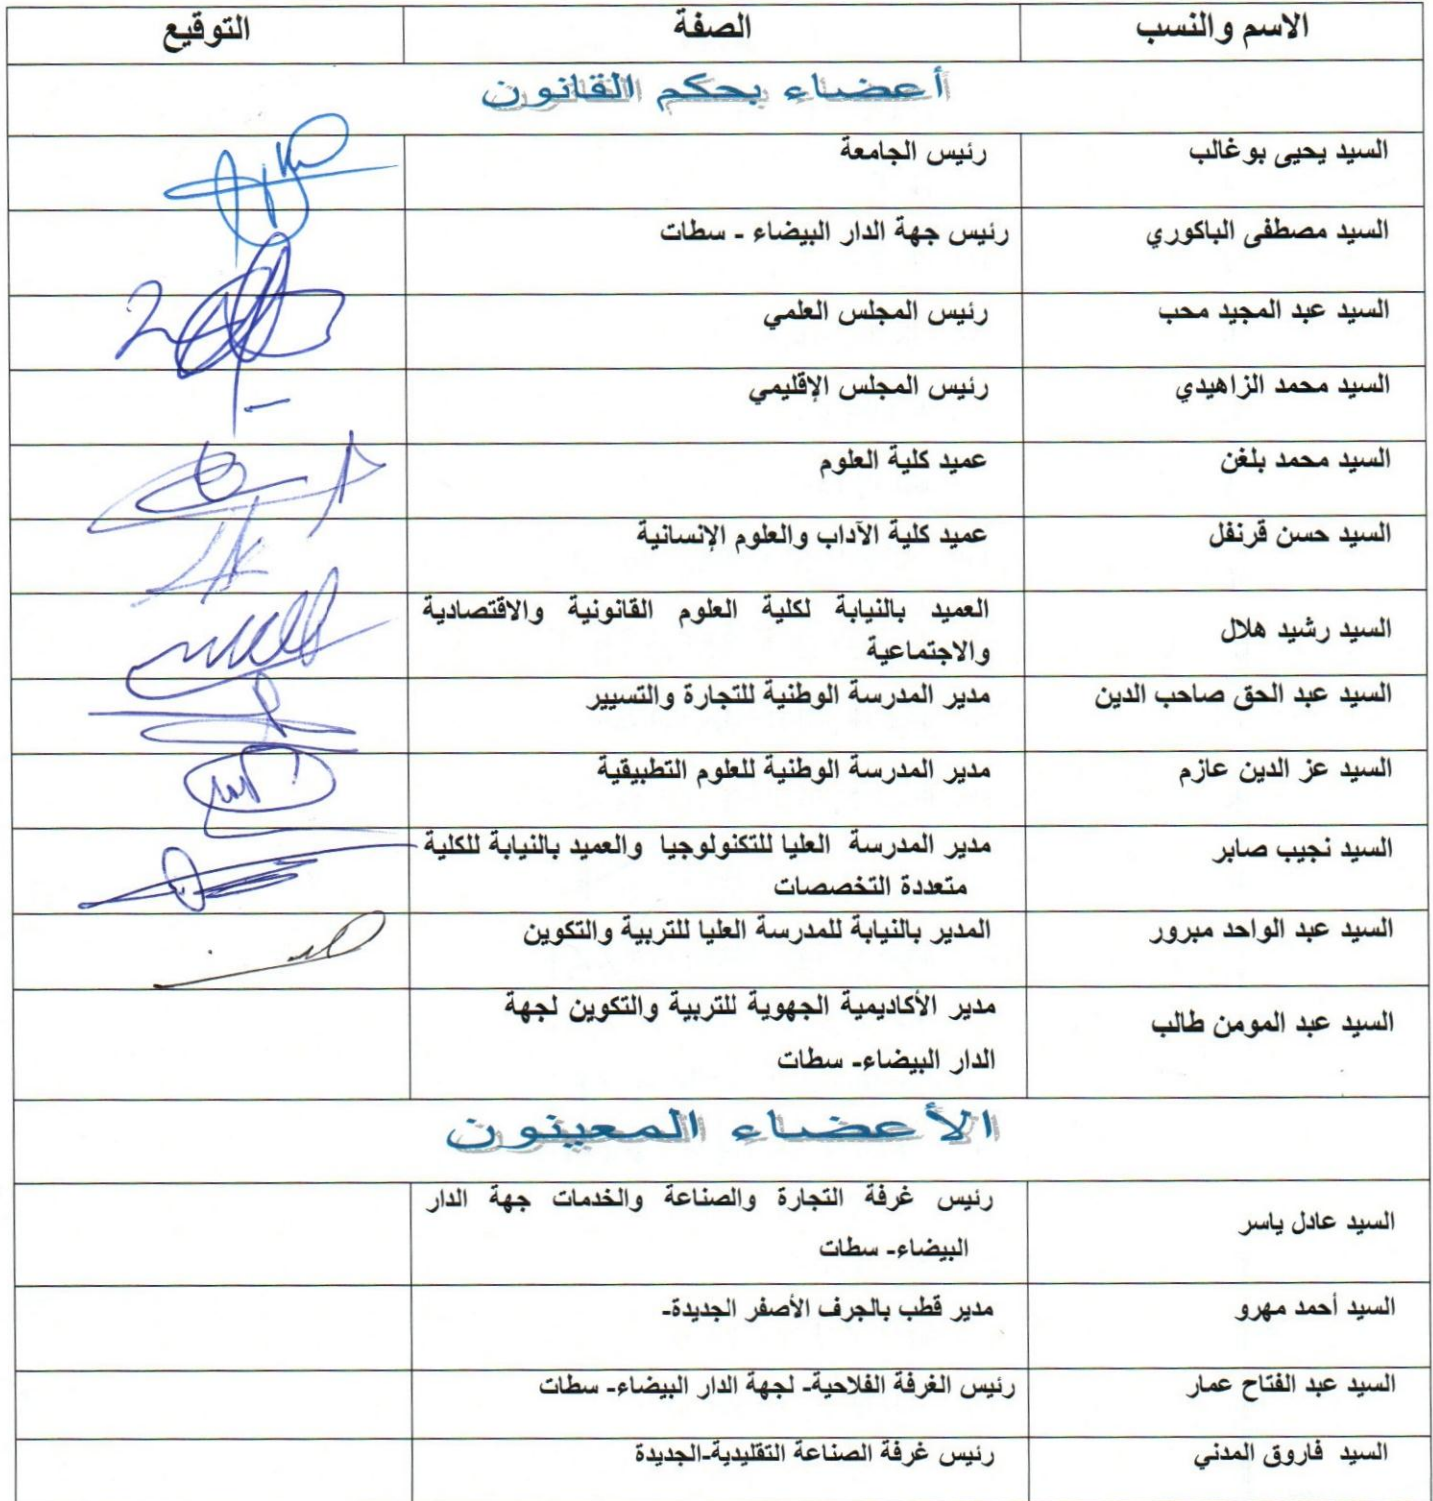 الاسم والنسب الصفة التوقيع
أعضاء بحكم القانون
السيد يحيى بوغالب رئيس الجامعة
السيد مصطفى الباكوري رئيس جهة الدار البيضاء - سطات
السيد عبد المجيد محب رئيس المجلس العلمي
السيد محمد الزاهيدي رئيس المجلس الإقليمي
السيد محمد بلغن عميد كلية العلوم
السيد حسن قرنفل عميد كلية الآداب والعلوم الإنسانية
السيد رشيد هلال العميد بالنيابة لكلية العلوم القانونية والاقتصادية
والاجتماعية
السيد عبد الحق صاحب الدين مدير المدرسة الوطنية للتجارة والتسيير
السيد عز الدين عازم مدير المدرسة الوطنية للعلوم التطبيقية
السيد نجيب صابر مدير المدرسة العليا للتكنولوجيا والعميد بالنيابة للكلية
متعددة التخصصات
السيد عبد الواحد مبرور المدير بالنيابة للمدرسة العليا للتربية والتكوين
السيد عبد المومن طالب مدير الأكاديمية الجهوية للتربية والتكوين لجهة
الدار البيضاء- سطات
الأعضاء المعينون
السيد عادل ياسر رئيس غرفة التجارة والصناعة والخدمات جهة الدار
البيضاء- سطات
السيد أحمد مهرو مدير قطب بالجرف الأصفر الجديدة-
السيد عبد الفتاح عمار رئيس الغرفة الفلاحية- لجهة الدار البيضاء- سطات
السيد فاروق المدني رئيس غرفة الصناعة التقليدية-الجديدة